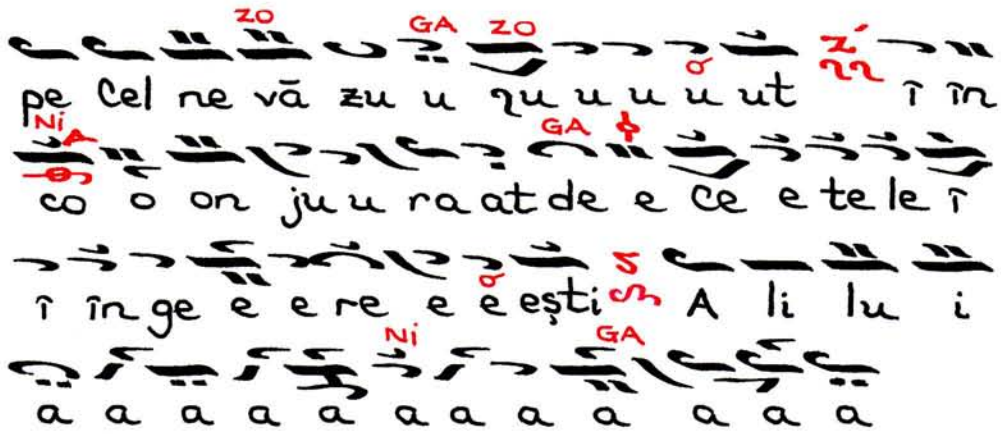 ZO GA ZO
pe Cel ne vă zu u ɳu u u u ut Z' î în
Ni A GA
co o on ju u ra at de e ce e te le î
î în ge e e re e e ești A li lu i
Ni GA
a a a a a a a a a a a a